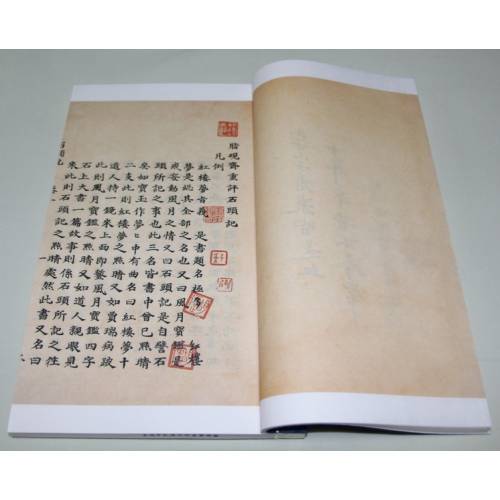 脂硯齋重評石頭記
凡例
紅樓夢旨義 是書題名極多 紅樓
夢是總其全部之名也又曰風月寶鑑是
戒妄動風月之情又曰石頭記是自譬石
頭所記之事也此三名皆書中曾已㸃睛
矣如寶玉作夢々中有曲名曰紅樓夢十
二支此則紅樓夢之㸃睛又如賈瑞病跛
道人持一鏡來上面即鏨風月寶鑑四字
此則風月寶鑑之㸃睛又如道人親眼見
石上大書一篇故事則係石頭所記之往
來此則石頭記之㸃睛處然此書又名曰